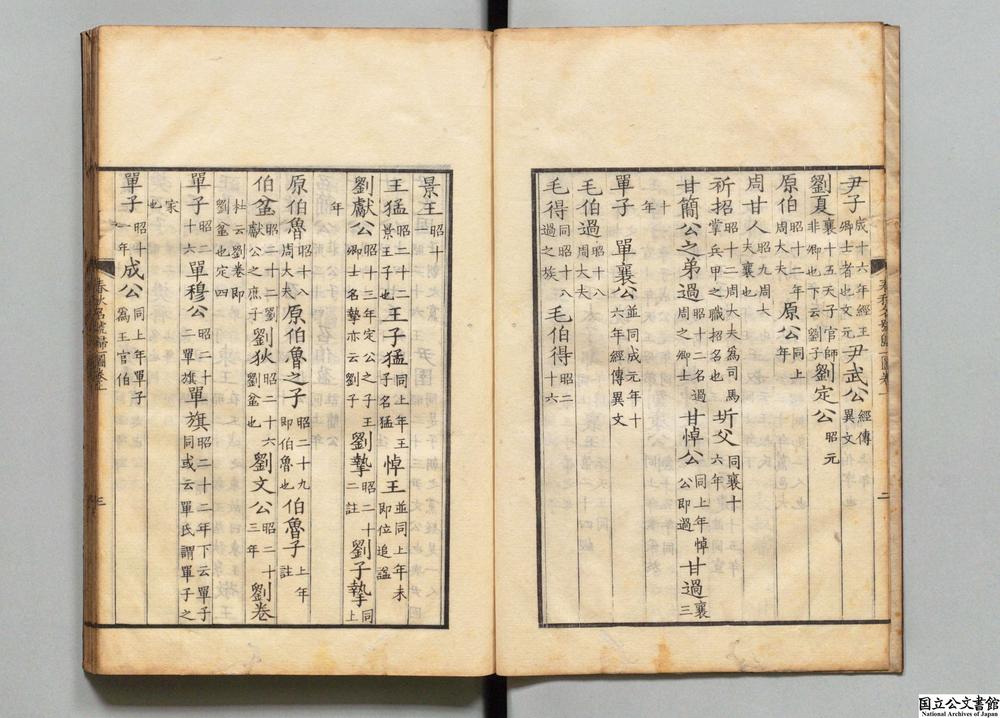 尹子成十六年經王卿士者也文元尹武公經傳異文
劉夏襄十五天子官師非卿也下云劉子劉定公昭元
原伯昭十二年周大夫原公同上年
周甘人昭九周大夫襄也
祈招昭十二周大夫為司馬掌兵甲之職招名也圻父同襄十六年
甘簡公之弟過昭十二名過周之卿士甘悼公同上年悼公即過甘過襄三
十年
單子單襄公並同成元年十六年經傳異文
毛伯過昭十八周大夫
毛得同昭十八過之族毛伯得昭二十六
景王昭十二
王猛昭二十二景王子王子猛同上年王子名猛悼王並同上年未即位追諡
劉獻公昭十三年定公之子王卿士名摯亦云劉子劉摯昭二十二註劉子摯同上
年
原伯魯昭十八周大夫原伯魯之子昭二十九即伯魯也伯魯子上年註
伯盆昭二十二劉獻公之庶子劉狄昭二十六劉盆也劉文公昭二十三年劉卷
杜云劉卷即劉盆也定四
單子昭二十六單穆公昭二十二單旗單旗昭二十二年下云單子同或云單氏謂單子之
家也
單子昭十一年成公同上年單子為王官伯
春秋名號歸一圖卷上
二
春秋名號歸一圖卷上
三
国立公文書館
National Archives of Japan